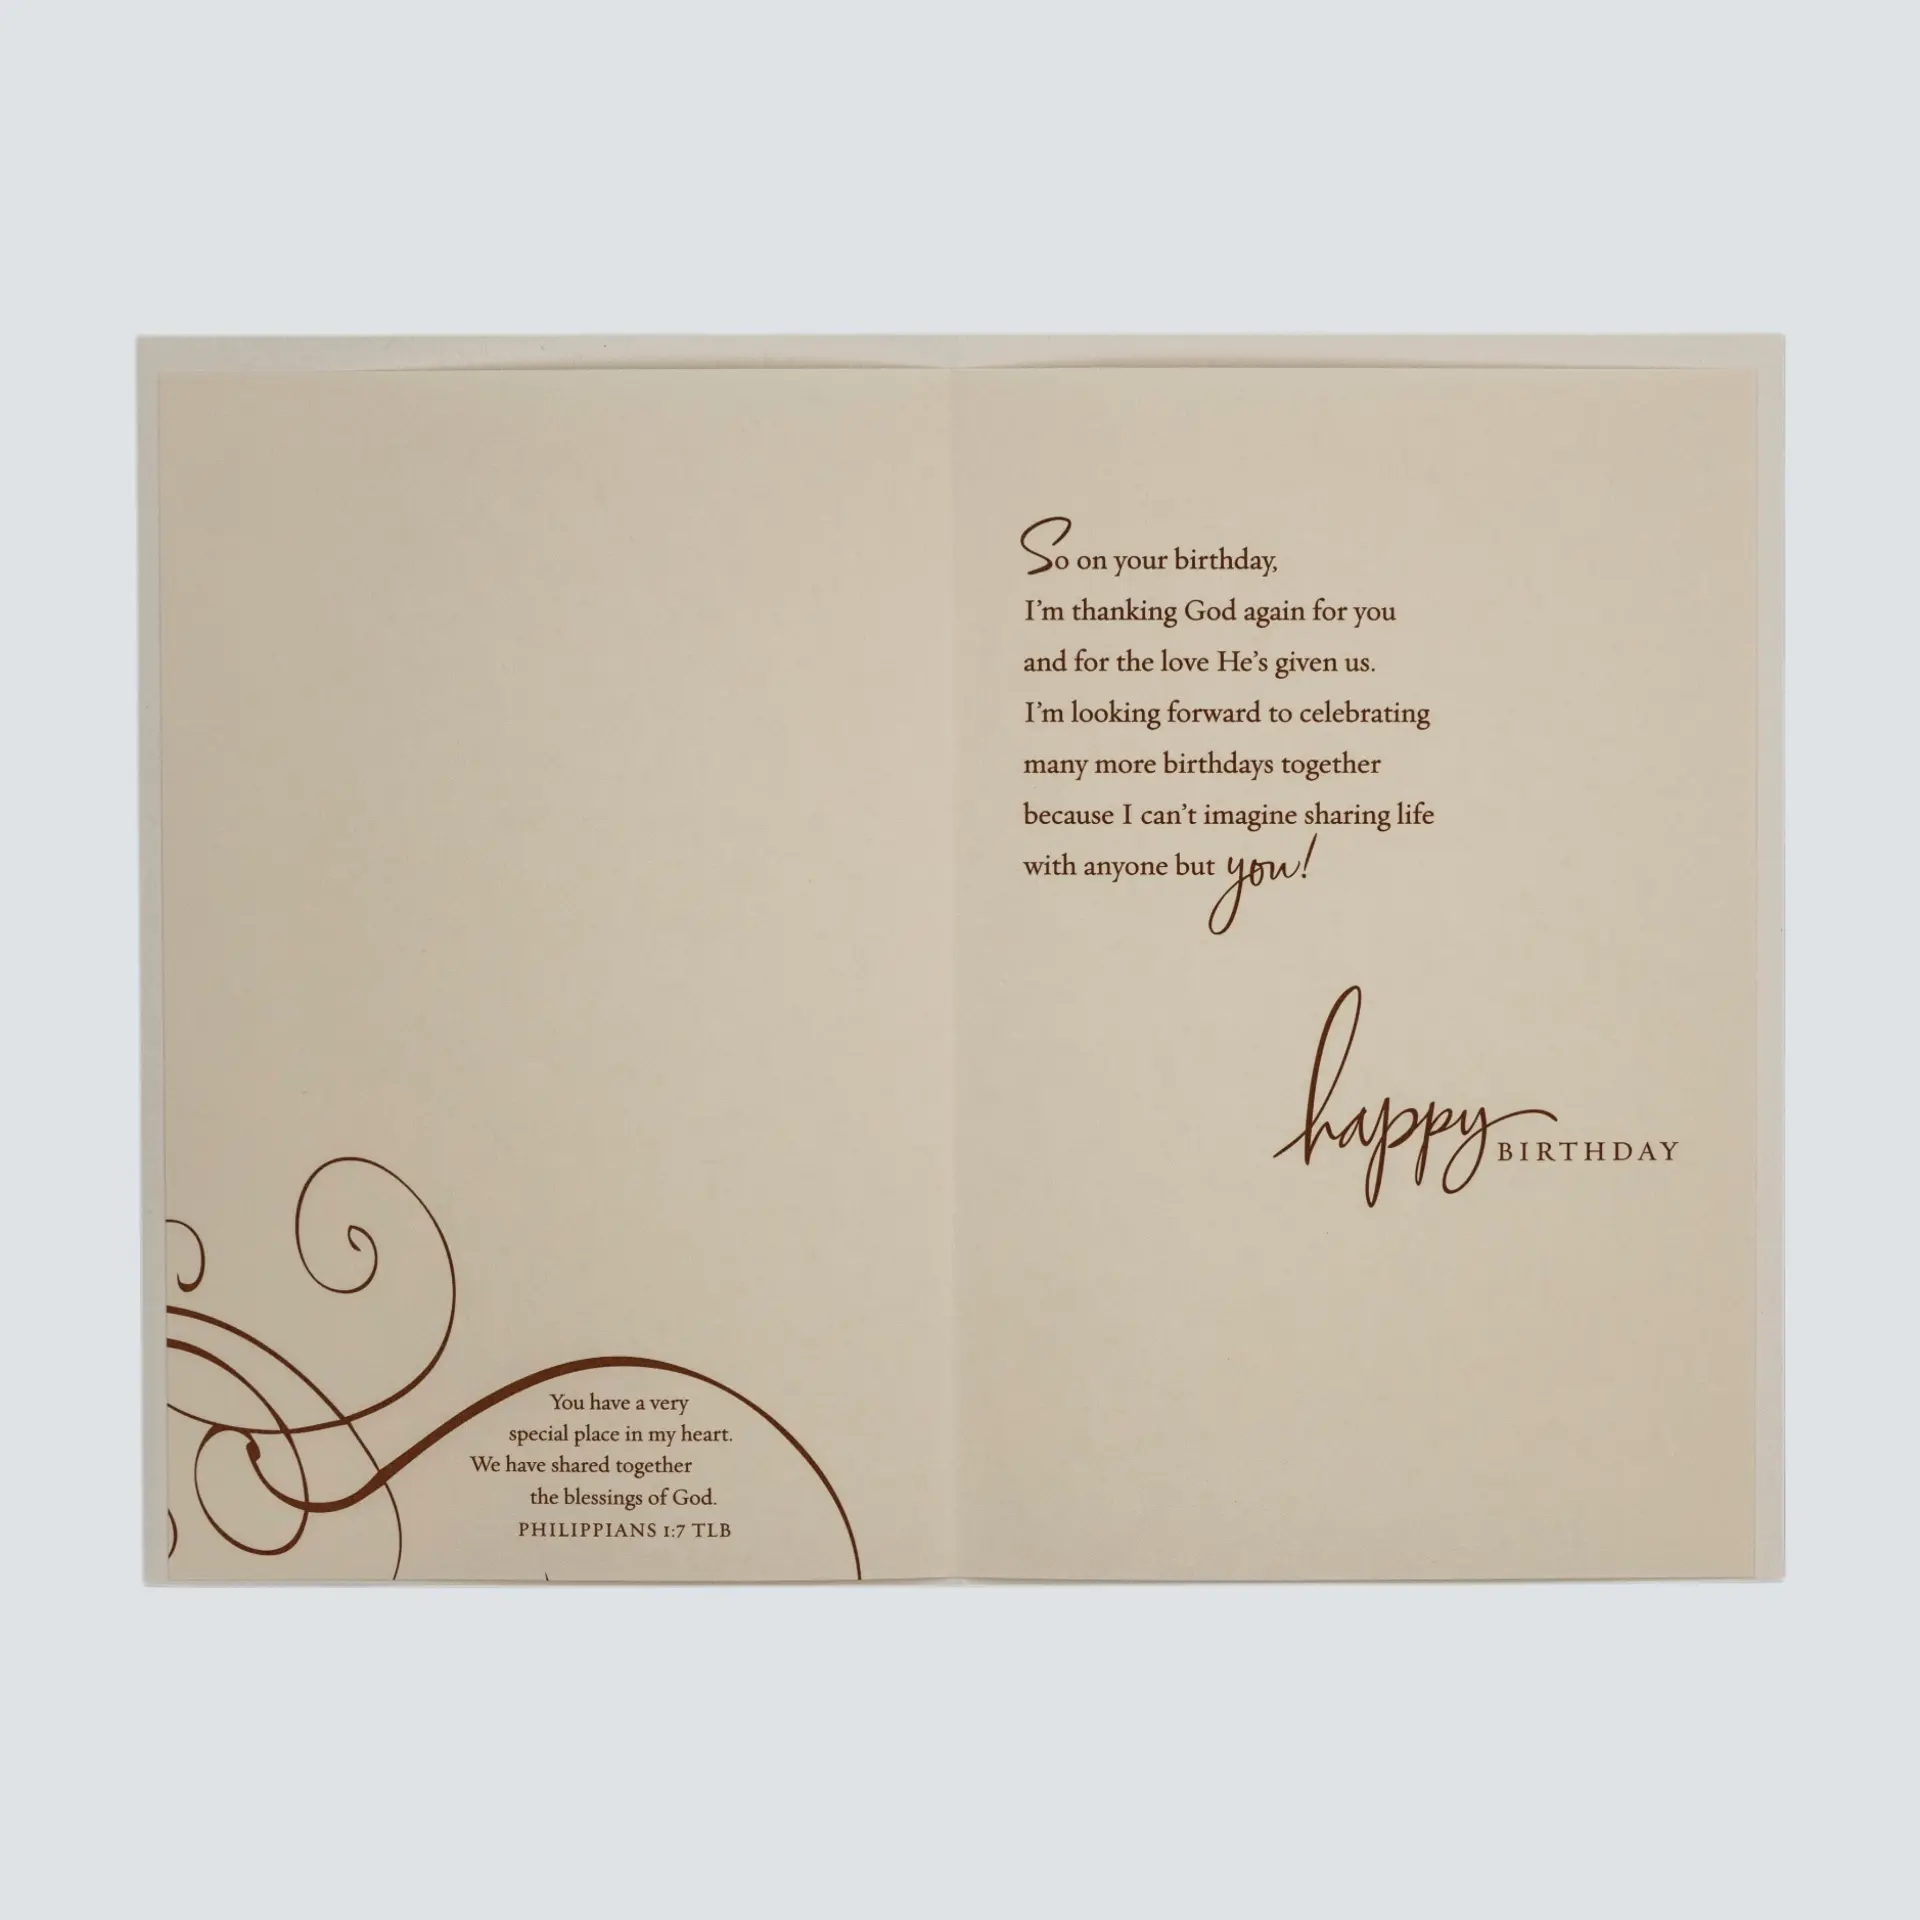 You have a very
special place in my heart.
We have shared together
the blessings of God.
PHILIPPIANS 1:7 TLB
So on your birthday,
I’m thanking God again for you
and for the love He’s given us.
I’m looking forward to celebrating
many more birthdays together
because I can’t imagine sharing life
with anyone but you!
happy BIRTHDAY